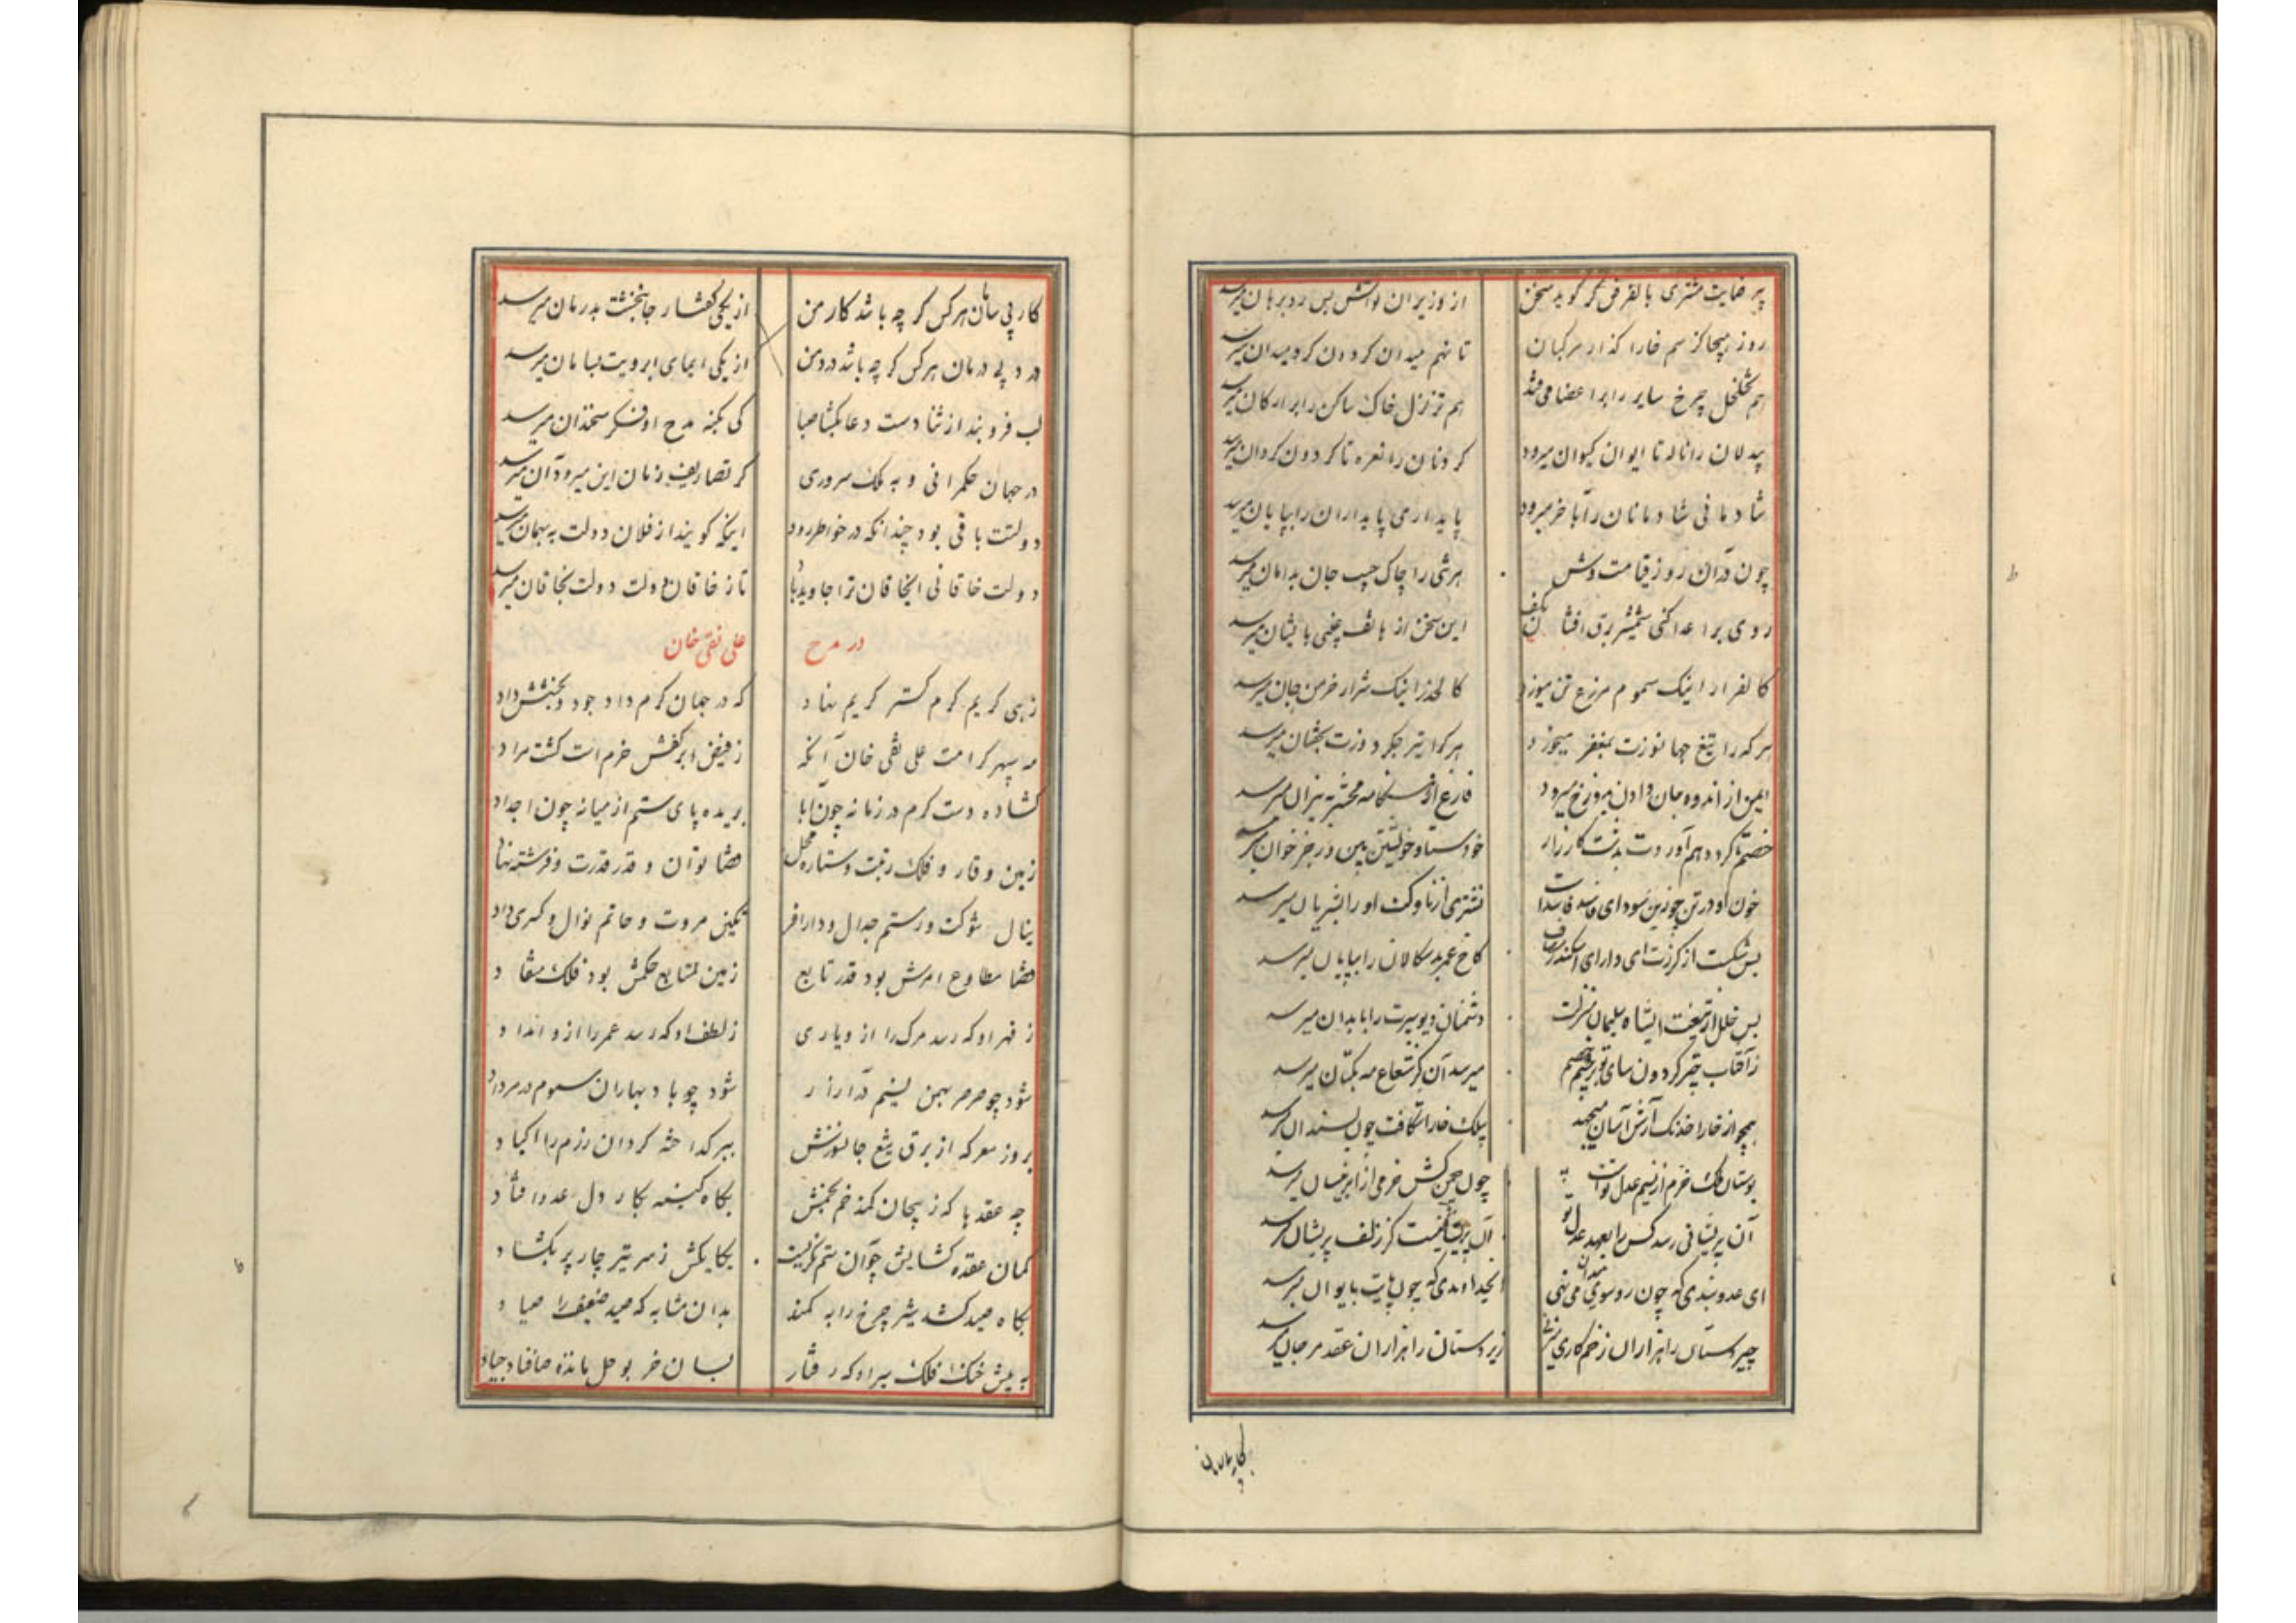 پیر
روز هیجا کز سم خارا گذار مرکبان تا نهم میدان گردون گرد میدان میرسد
هم تخلخل چرخ سایر را بر اعضا می‌فتد هم تزلزل خاک ساکن را بر ارکان میرسد
بیدلان را ناله تا ایوان کیوان میرود کردنان را نعره تا گردون گردان میرسد
شادمانی شادمانان را بآخر میرود پایداری پایداران را بپایان میرسد
چون در آن روز قیامت وش هرشی را چاک جیب جان بدامان میرسد
روی بر اعدا کنی شمشیر برق افشان بکف این سخن از هاتف غیبی بایشان میرسد
کالفرار اینک سموم مزرع تن میوزد کالحذر اینک شرار خرمن جان میرسد
هر که را تیغ جهانسوزت بمغفر میخورد هر کرا تیر جگردوزت بخفتان میرسد
ایمن از اندوه جان دادن بدوزخ میرود فارغ از هنگامه محشر به نیران میرسد
خصم گردد هم‌آوردت بدشت کارزار خودستا و خویشتن بین در رجز خوان میرسد
خون او در تن چو زین سودای فاسد فاسد است نشتری از ناوکت او را بشریان میرسد
بس شکست از گرزت ای دارای اسکندر مصاف کاخ عمر بدسگالان را بپایان میرسد
بس خلل از تیغت ایشاه سلیمان منزلت دشمنان دیوسیرت را بابدان میرسد
ز آفتاب چتر گردون سای تو بر جسم خصم میرسد آن کز شعاع مه بکتان میرسد
همچو از خارا خدنک آرش آسان میجهد بیلک خارا شکافت چون بسندان میرسد
بوستان ملک خرم از نسیم عدل تو است چون چمن کش خرمی از ابر نیسان میرسد
آن پریشانی رسد کس را بعهد عدل تو آن پریشانیست کز زلف پریشان میرسد
ای عدوبندی که چون رو سوی میدان می نهی ایخداوندی که چون پایت بایوان میرسد
چیر دستان را هزاران زخم کاری میزنی زیر دستان را هزاران عقد مرجان میرسد
کار بی سامان هرکس گر چه باشد کار من از یکی گفتار جانبخشت بدرمان میرسد
درد بی درمان هرکس گر چه باشد درد من از یکی ایمای ابرویت بسامان میرسد
لب فرو بند از ثنا دست دعا بگشا صبا کی بکنه مدح او فکر سخندان میرسد
در جهان حکمرانی و به ملک سروری کز تصاریف زمان این میرود آن میرسد
دولتت باقی بود چندانکه در خواطر رود اینکه گویند از فلان دولت به بهمان میرسد
دولت خاقانی ایخاقان ترا جاوید باد تا ز خاقان دولت دولت بخاقان میرسد
در مدح علی نقی خان
زهی کریم کرم گستر کریم نهاد که در جهان کرم داد جود و بخشش داد
مه سپهر کرامت علی نقی خان آنکه ز فیض ابر کفش خرم است کشت مراد
گشاده دست کرم در زمانه چون آبا بریده پای ستم از میانه چون اجداد
زمین وقار و فلک رتبت و ستاره محل قضا توان و قدر قدرت و فرشته نهاد
ینال شوکت و رستم جدال و دارا فر نگین مروت و حاتم نوال و کسری داد
قضا مطاوع امرش بود قدر تابع زمین متابع حکمش بود فلک منقاد
ز قهر او که رسد مرگ را از و یاری ز لطف او که رسد عمر را از و امداد
شود چو صرصر بهمن نسیم در آزار شود چو باد بهاران سموم در مرداد
بروز معرکه از برق تیغ جانسوزش
چه عقدها که ز پیچان کمند خم بخمش بگاه کینه بکار دل عدو افتاد
کمان عقده گشایش چو آن ستم نگریست یکایکش ز سر تیر چار پر بگشاد
بگاه صید کشد شیر چرخ را به کمند بدان مثابه که صید ضعیف را صیاد
به پیش خنک فلک سیر او که رفتار بسان خر بوحل مانده صافنات جیاد
کار بی سامان